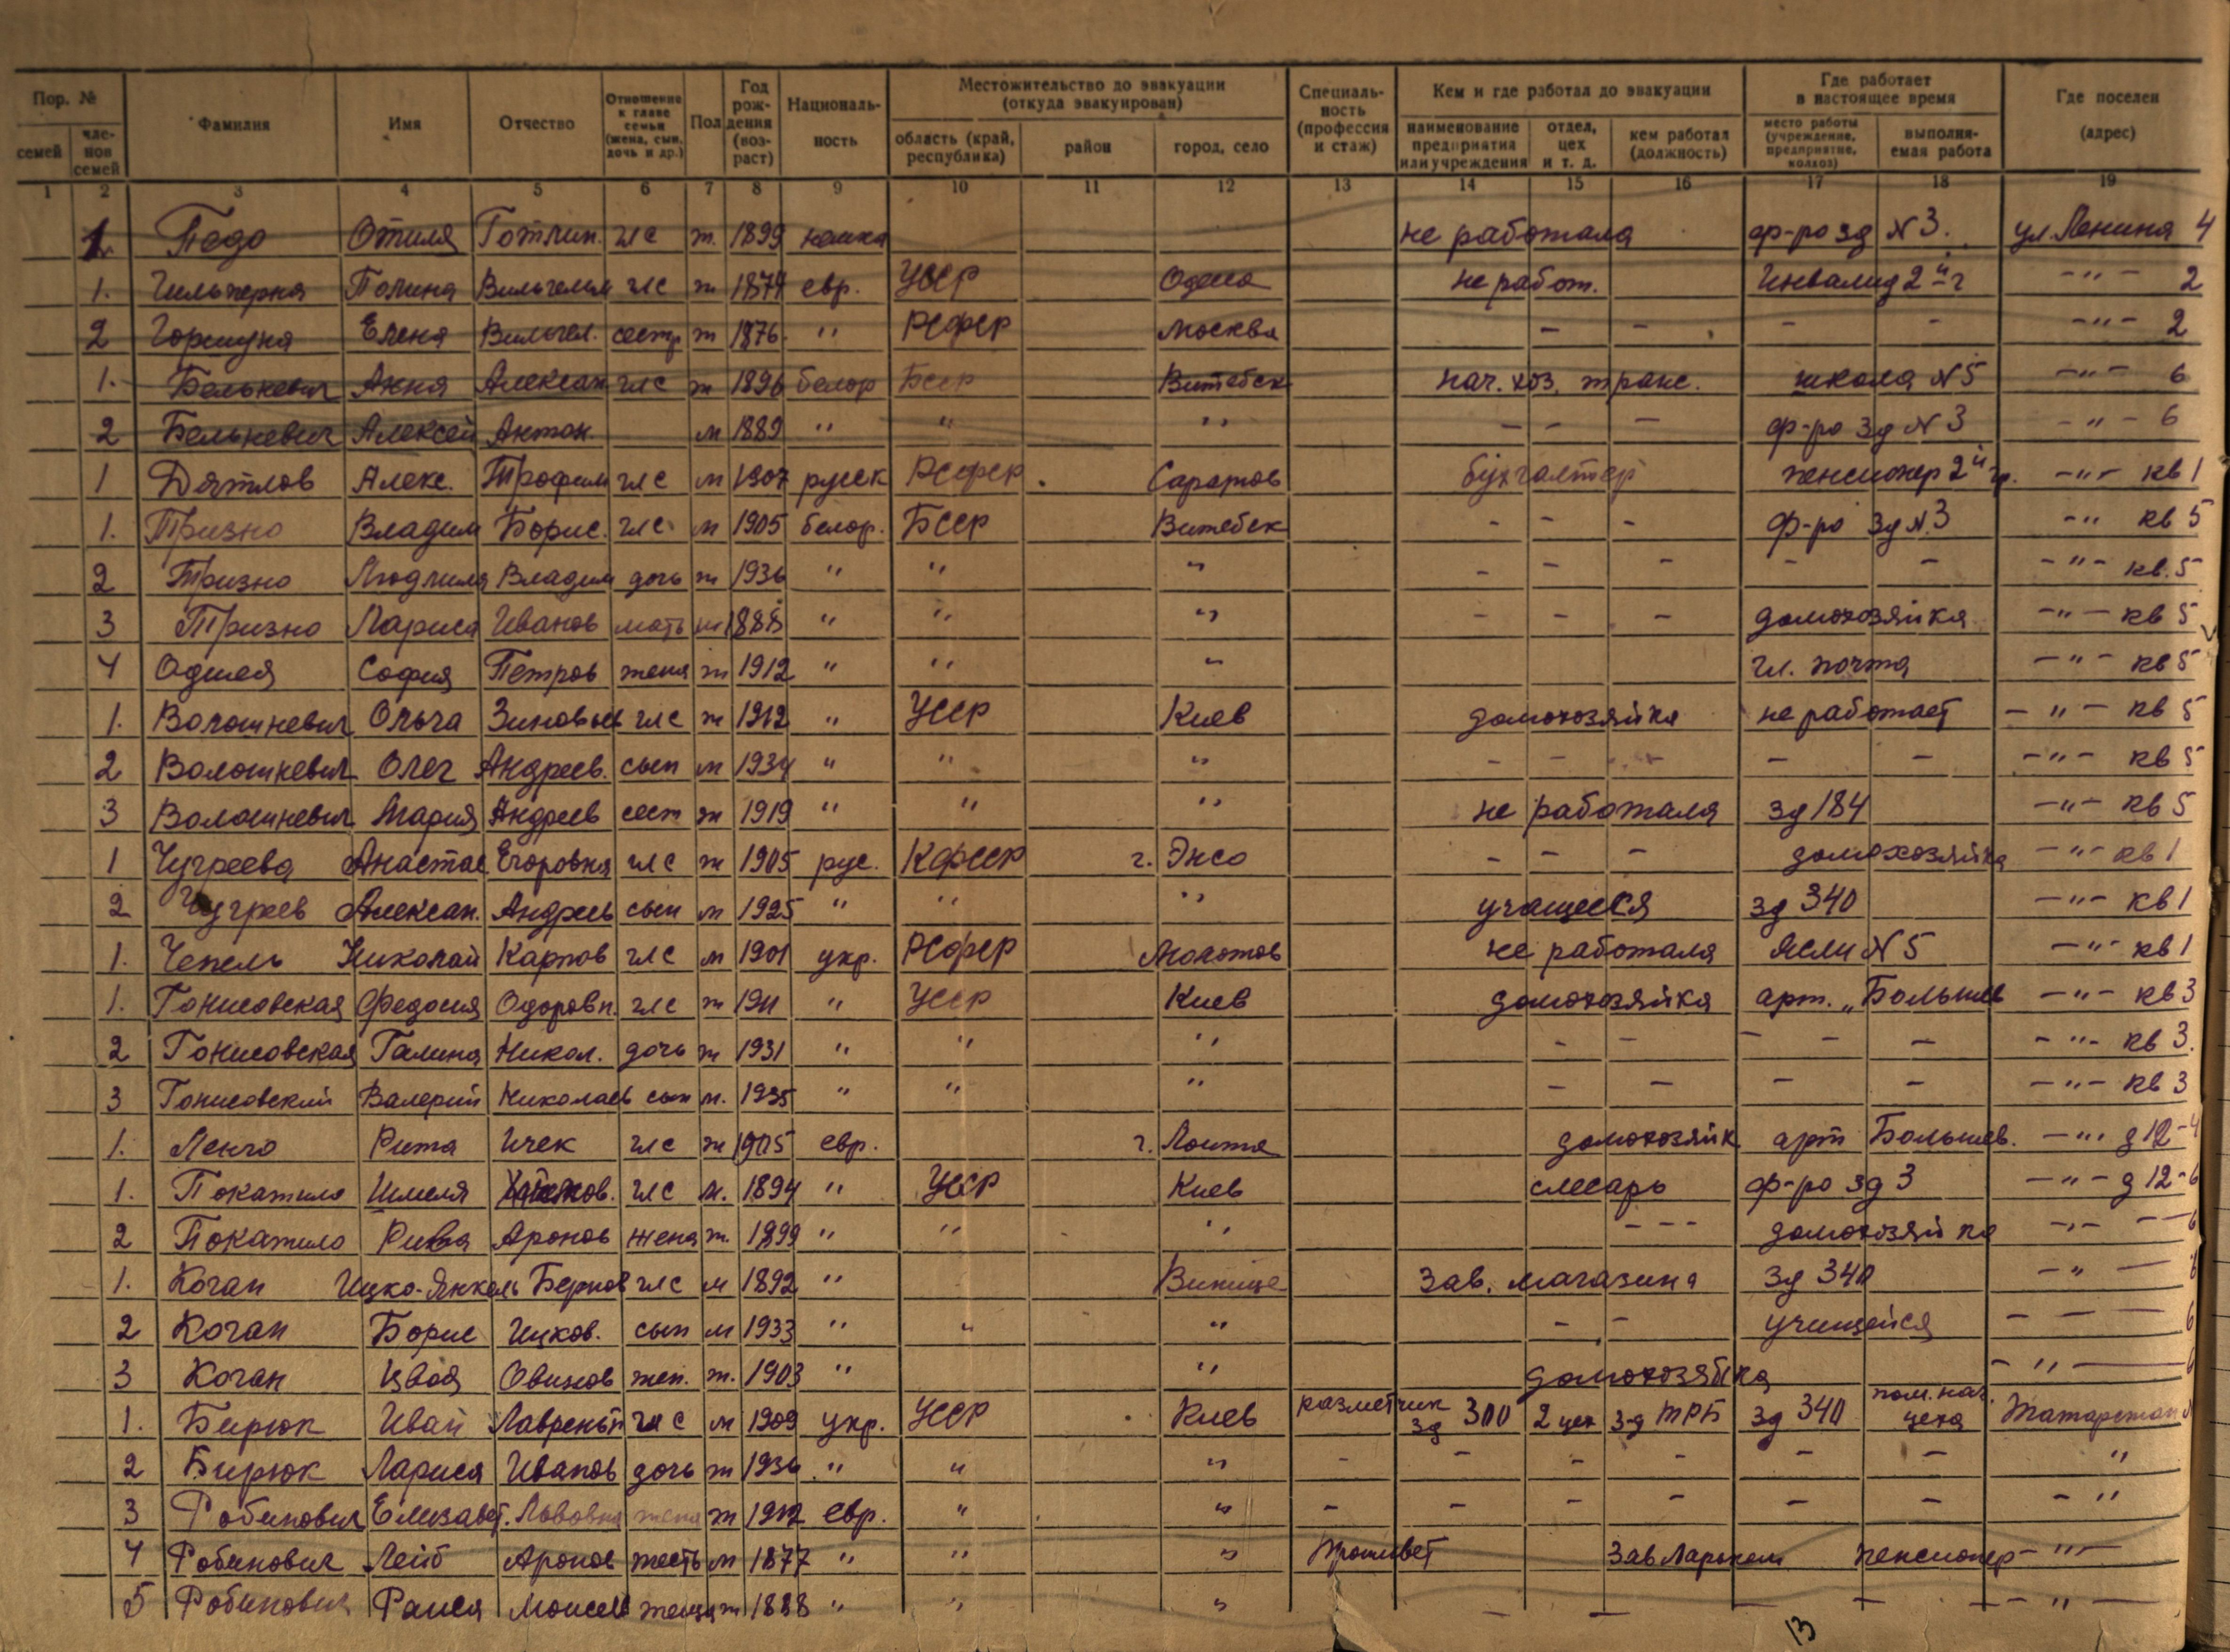 Пор. № Фамилия Имя Отчество Отношение к главе семьи (жена, сын, дочь и др.) Пол Год рождения (возраст) Националь-ность Местожительство до эвакуации (откуда эвакуирован) Специаль-ность (профессия и стаж) Кем и где работал до эвакуации Где работает в настоящее время Где поселен (адрес)
семей чле-нов семей область (край, республика) район город, село наименование предприятия или учреждения отдел, цех и т. д. кем работал (должность) место работы (учреждение, предприятие, колхоз) выполня-емая работа
1 2 3 4 5 6 7 8 9 10 11 12 13 14 15 16 17 18 19
1 Отиля Готлип. глс ж. 1899 немка не работала ф-ро зд N 3. ул. Ленина 4
1. Полина Вильгельм глс ж 1874 евр. УССР Одесса не работ. Инвалид 2й г -"- 2
2 Елена Вильгел. сестр ж 1876 " РСФСР Москва - - - - -"- 2
1. Белькевич Анна Алексан глс ж 1896 белор БССР Витебск нач. хоз. транс. школа N 5 -"- 6
2 Белькевич Алексей Антон. м 1889 " " " - - - ф-ро зд N 3 -"- 6
1 Дятлов Алекс. Трофим глс м 1907 русск РСФСР Саратов бухгалтер пенсионер 2й гр. -"- кв 1
1. Тризно Владим Борис. глс м 1905 белор. БССР Витебск - - - ф-ро зд N. 3 -" кв 5
2 Тризно Людмила Владим дочь ж 1936 " " " - - - - - -"- кв. 5
3 Тризно Лариса Иванов мать ж 1888 " " " - - - домохозяйка -"- кв 5
4 София Петров жена ж 1912 " " " гл. почта -"- кв 5
1. Волошкевич Ольга Зиновьев глс ж 1912 " УССР Киев домохозяйка не работает -"- кв 5
2 Волошкевич Олег Андреев. сын м 1934 " " " - - - - - -"- кв 5
3 Волошкевич Мария Андреев сест ж 1919 " " " не работала зд 184 -"- кв 5
1 Чугреева Анастас Егоровна глс ж 1905 рус. КФССР г. Энсо - - - домохозяйка -"- кв 1
2 Чугреев Алексан. Андреев сын м 1925 " " " учащийся зд 340 -"- кв 1
1. Чепель Николай Карпов глс м 1901 укр. РСФСР Молотов не работала Ясли N 5 -"- кв 1
1. Гонисовская Федосия Одоровн. глс ж 1911 " УССР Киев домохозяйка арт. „Большев -"- кв 3
2 Гонисовская Галина Никол. дочь ж 1931 " " " - - - - - -"- кв 3.
3 Гонисовский Валерий Николаев сын м. 1935 " " " - - - - -"- кв 3
1. Ленго Рита Ичек глс ж 1905 евр. г. домохозяйк арт Большев. -"- д 12-4
1. Покатило Шмеля глс м. 1894 " УССР Киев слесарь ф-ро зд 3 -"- д 12-6
2 Покатило Рива Аронов жена ж. 1899 " " " - - - домохозяйка -"- - 6
1. Коган Ицко-Янкель Берков глс м 1892 " Винице Зав. магазина Зд 340 -"- 6
2 Коган Борис Ицков. сын м 1933 " " " - - учищейся - - - 6
3 Коган жен. ж. 1903 " " домохозяйка -"- 6
1. Бирюк Иван Лаврент глс м 1909 укр. УССР Киев разметчик зд 300 2 цех з-д ТРБ зд 340 пом. нач. цеха
2 Бирюк Лариса Иванов дочь ж 1936 " " " - - - - - - "
3 Рабинович Елизавет. Львовна жена ж 1912 евр. " " - - - - - - -"
4 Рабинович Лейб Аронов тесть м 1877 " " " Зав Ларьком пенсионер -"-
5 Рабинович Раися Моисеев теща ж 1888 " " " - - - - -"-
13